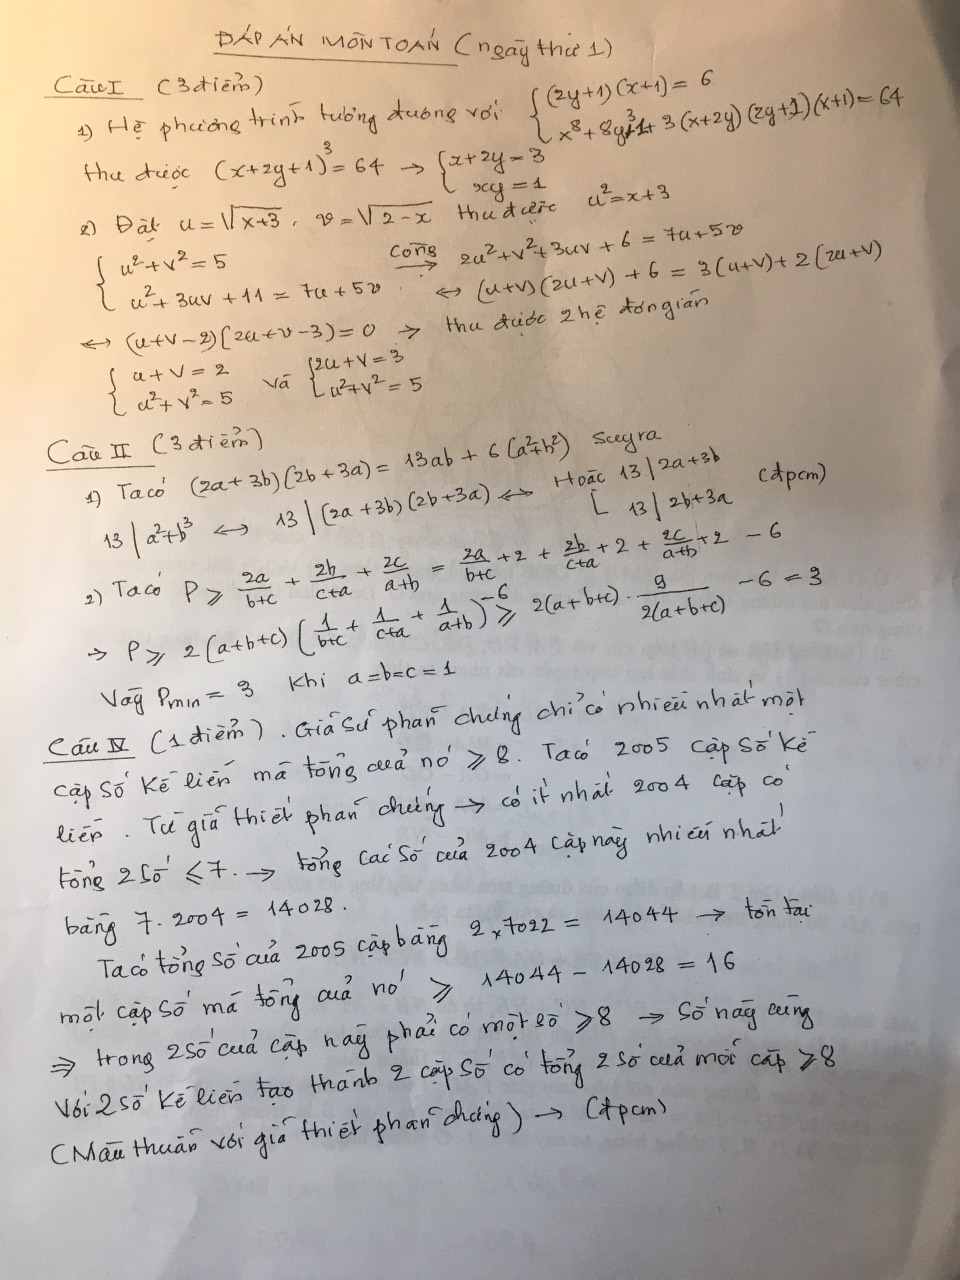 ĐÁP ÁN MÔN TOÁN (ngày thứ 1)
Câu I (3 điểm)
1) Hệ phương trình tương đương với { (2y+1)(x+1) = 6
x⁸ + 8y³ + 1 + 3(x+2y)(2y+1)(x+1) = 64
thu được (x+2y+1)³ = 64 → { x+2y = 3
xy = 1
2) Đặt u = √(x+3), v = √(2-x) thu được u² = x+3
{ u² + v² = 5
u² + 3uv + 11 = 7u + 5v
Cộng → 2u² + v² + 3uv + 6 = 7u + 5v
↔ (u+v)(2u+v) + 6 = 3(u+v) + 2(2u+v)
↔ (u+v-2)(2u+v-3) = 0 → thu được 2 hệ đơn giản
{ u + v = 2
u² + v² = 5
và { 2u + v = 3
u² + v² = 5
Câu II (3 điểm)
1) Ta có (2a+3b)(2b+3a) = 13ab + 6(a²+b²) suy ra
13 | a²+b³ ↔ 13 | (2a+3b)(2b+3a) ↔ Hoặc [ 13 | 2a+3b
13 | 2b+3a (đpcm)
2) Ta có P ≥ 2a/(b+c) + 2b/(c+a) + 2c/(a+b) = 2a/(b+c) + 2 + 2b/(c+a) + 2 + 2c/(a+b) + 2 - 6
→ P ≥ 2(a+b+c)(1/(b+c) + 1/(c+a) + 1/(a+b)) - 6 ≥ 2(a+b+c) · 9/(2(a+b+c)) - 6 = 3
Vậy Pmin = 3 khi a=b=c=1
Câu IV (1 điểm). Giả sử phản chứng chỉ có nhiều nhất một
cặp số kề liền mà tổng của nó ≥ 8. Ta có 2005 cặp số kề
liền. Từ giả thiết phản chứng → có ít nhất 2004 cặp có
tổng 2 số ≤ 7. → tổng các số của 2004 cặp này nhiều nhất
bằng 7.2004 = 14028.
Ta có tổng số của 2005 cặp bằng 2×7022 = 14044 → tồn tại
một cặp số mà tổng của nó ≥ 14044 - 14028 = 16
⇒ trong 2 số của cặp này phải có một số ≥ 8 → số này cùng
với 2 số kề liền tạo thành 2 cặp số có tổng 2 số của mỗi cặp ≥ 8
(Mâu thuẫn với giả thiết phản chứng) → (đpcm)